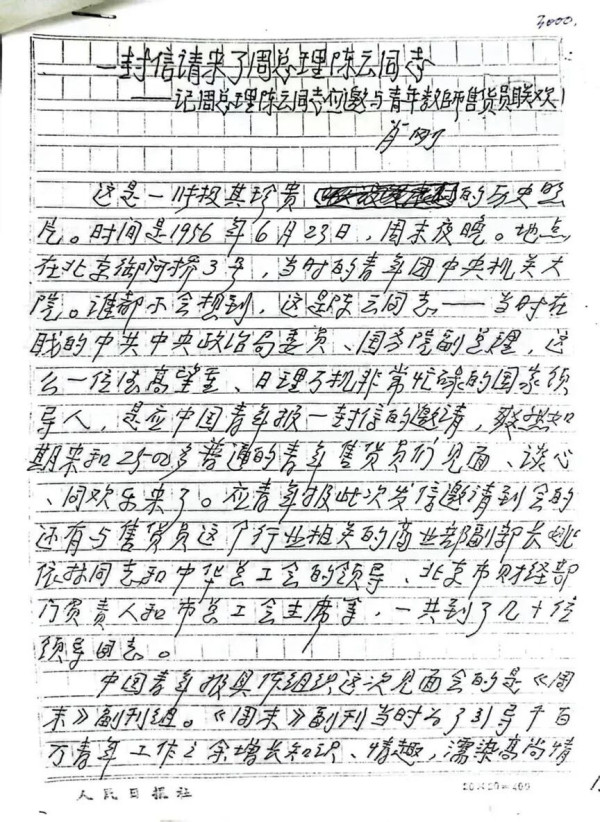 3000.
一封信请来了周总理陈云同志
——记周总理陈云同志应邀与青年教师售货员联欢
肖明
这是一帧极其珍贵的历史照
片。时间是1956年6月23日,周末夜晚。地点
在北京御河桥3号,当时的青年团中央机关大
院。谁都不会想到,这是陈云同志——当时在
职的中共中央政治局委员、国务院副总理,这
么一位德高望重、日理万机非常忙碌的国家领
导人,是应中国青年报一封信的邀请,欣然如
期来和2500多普通的青年售货员们见面、谈心
、同欢乐来了。应青年报此次发信邀请到会的
还有与售货员这个行业相关的商业部副部长姚
依林同志和中华总工会的领导、北京市财经部
门负责人和市总工会主席等,一共到了几十位
领导同志。
中国青年报具体组织这次见面会的是《周
末》副刊组。《周末》副刊当时为了引导千百
万青年工作之余增长知识、情趣,濡染高尚情
人民日报社
20×20=400